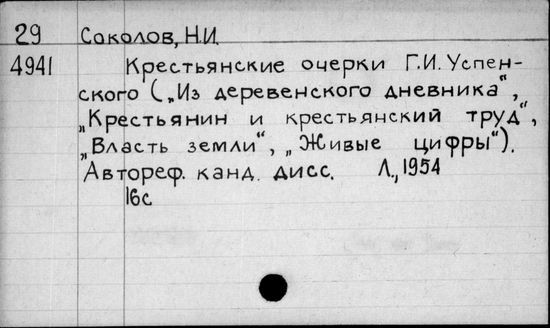 29 Соколов, Н.И.
4941 Крестьянские очерки Г.И. Успен-
ского („Из деревенского дневника“,
„Крестьянин и крестьянский труд“,
„Власть земли“, „Живые цифры“).
Автореф. канд. дисс. Л., 1954
16с